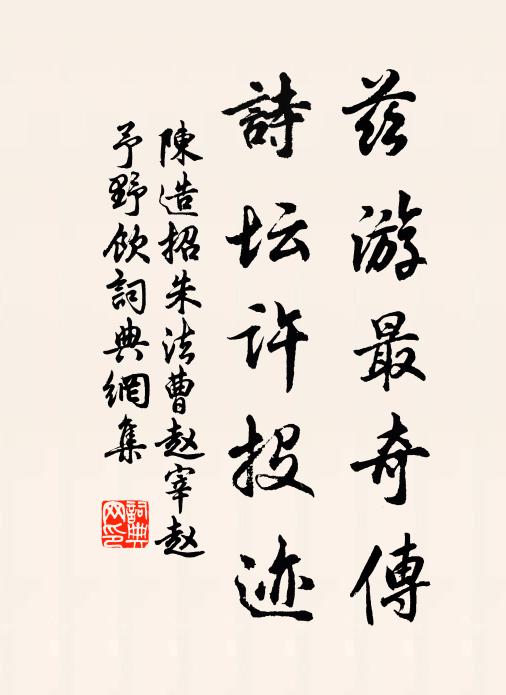 茲游最奇傳
詩坛许投迹
陳造招朱法曹赵宰赵
予野飲詞典網集
詞典网印